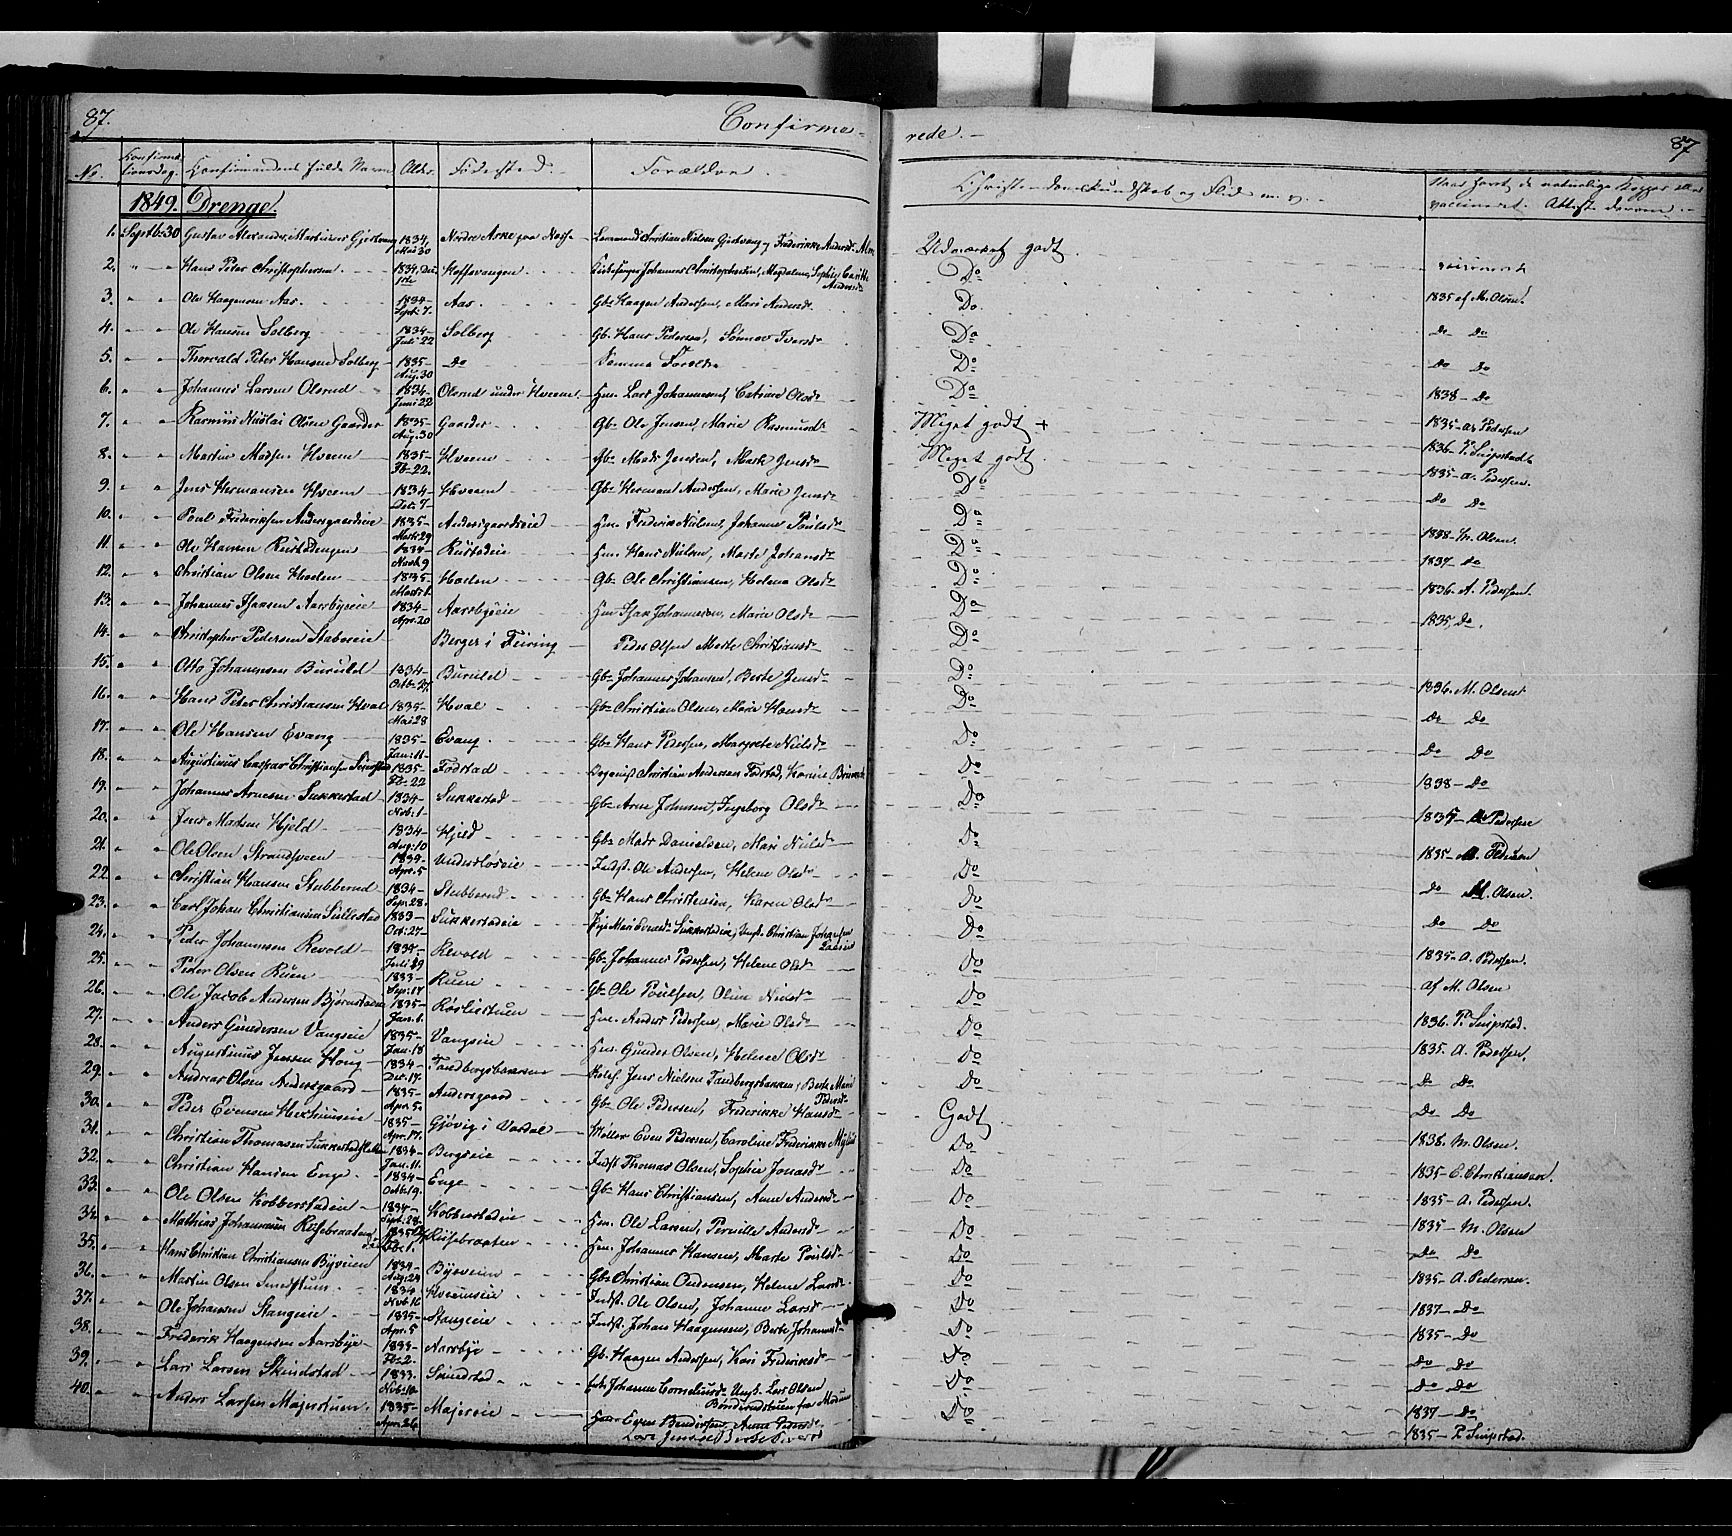 87. Confirme- rede. 87
No. Confirmationsdag. Konfirmandens fulde Navn Alder. Fødested. Forældre. Christendomskundskab og Flid m. v. Naar havt de naturlige Kopper eller vaccineret. Attest derom.
1849. Drenge.
1. Septb. 30 Gustav Alexander Martinius Gjestvang 1834, Mai 30 Nordre Arke paa Næsse Christian Nielsen Gjestvang, Frederikke Andersd. Udmærket godt.
2. " " Hans Peter Christophersen 1834. Dec. Hoffsvangen Kirkesanger Johannes Christophersen, Magdalene Sophie Andersd. Do vaccineret
3. " " Ole Haagensen Aas. 1834 Sept. 7. Aas. Gbr. Haagen Andersen, Mari Andersdr Do. 1835 af M. Olsen.
4. " " Ole Hansen Solberg 1834 Juli 22 Solberg Gb. Hans Pedersen, Sønnov Iversdr Do Do Do
5. " " Thorvald Peter Hansen Solberg 1835 Aug. 30 Do Samme Forældre Do Do Do
6. " " Johannes Larsen Olsrud 1834 Juni 22 Olsrud under Hveem. Hm. Lars Johannesen, Catrine Olsdr Do 1838 Do
7. " " Rasmus Nicolai Olsen Gaarder 1835 Aug. 30 Gaarder Gbr Ole Jensen, Marie Rasmusdr Meget godt + 1835 A. Pedersen
8. " " Martin Madsen Hveem 1835 Fb. 22. Hveem Gbr Mads Jensen, Marthe Jensdr Meget godt. 1836 P. Snipstad
9. " " Jens Hermansen Hveem 1834 Dec. 7 Hveem Gbr Herman Andersen, Marie Jensdr Do 1835 A. Pedersen.
10. " " Poul Frederiksen Andersgaardseie 1835 Marts 29 Andersgaardseie Hm. Frederik Nielsen, Johanne Poulsdr Do Do Do
11. " " Ole Hansen Rustadengen 1834 Novb. 9 Rustadeie Hm. Hans Nielsen, Marte Johansdr Do 1838 M. Olsen.
12. " " Christian Olsen Hoden 1835 Marts 1. Hoden Gbr Ole Christiansen, Helene Olsdr Do 1837 Do
13. " " Johannes Isaksen Aarsbyeie 1834 Apr. 20 Aarsbyeie Hm Isak Johannesen, Marie Olsdr Do 1836 A. Pedersen.
14. " " Christopher Pedersen Stabereie Berger i Feiring Peder Olsen Marthe Christiansdr Do 1835, Do.
15. " " Otto Johannesen Buruld 1834 Octb. 27. Buruld Gbr Johannes Johansen, Berte Jensdr Do
16. " " Hans Peter Christiansen Hval 1835 Mai 28 Hval Gbr Christian Olsen, Marie Hansdr Do 1836. M. Olsen
17. " " Ole Hansen Evang 1835 Jan. 11 Evang Gbr Hans Pedersen, Margrete Nielsdr Do Do Do
18. " " Augustinus Caspar Christiansen 1835 Fb. 22 Fodstad Christian Andersen Fodstad, Karine Do Do Do
19. " " Johannes Arnesen Sukkestad 1834 Nov. 1. Sukkestad Gbr Arne Johnsen, Ingeborg Olsdr Do 1838 Do
20. " " Jens Madsen Hjeld 1834 Aug. 10 Hjeld Gbr Mads Danielsen, Mari Nielsdr Do 1837 Pedersen
21. " " Ole Olsen Strandsveen 1834 Apr. 5 Underløseie Indst. Ole Andersen, Helene Olsdr Do 1835 Pedersen
22. " " Christian Hansen Stubberud 1834 Sep. 28. Stubberud Gbr Hans Christensen, Karen Olsdr Do Do M. Olsen.
23. " " Carl Johan Christiansen Sullestad 1833 Oct. 27 Sukkestadeie Pige Mari Evensdr Sukkestadeie, Ungk. Christian Johansen Do Do Do
24. " " Peder Johannesen Revold 1834 Juli 29 Revold Gbr Johannes Pedersen, Helene Olsdr Do 1835 A. Pedersen.
25. " " Peder Olsen Ruen 1833 Sep. 17 Ruen Gb. Ole Poulsen, Oline Nielsdr Do af M. Olsen
26. " " Ole Jacob Andersen Bjørnstuen 1835 Jan. 1. Røsliestuen Hm. Anders Pedersen, Marie Olsdr Do 1836 P. Snipstad.
27. " " Anders Gundersen Vangseie 1835 Jan. 18 Vangseie Hm. Gunder Olsen, Helene Olsdr Do 1835. A. Pedersen.
28. " " Augustinus Jensen Houg 1834 Dec. 17. Tandbergsbakken Jens Nielsen Tandbergsbakken, Berte Marie Pedersdr Do Do Do
29. " " Andreas Olsen Andersgaard 1835 Apr. 5. Andersgaard Gbr Ole Pedersen, Frederikke Hansdr Godt. Do Do
30. " " Peder Evensen 1835 Apr. 17. Gjøvig i Vardal Møller Even Pedersen, Caroline Frederikke Do 1838. M. Olsen.
31. " " Christian Thomasen Sukkestad 1834 Jan. 11. Bergseie Indst Thomas Olsen, Sophie Jonasdr Do 1835 E. Christiansen.
32. " " Christian Hansen Enge 1834 Octb. 19. Enge Gbr Hans Christiansen, Anne Andersdr Do 1835 A. Pedersen.
33. " " Ole Olsen Kobberstadeie 1834 Sept. 28 Kobberstadeie Hm. Ole Larsen, Pernille Andersdr Do 1835 M. Olsen
34. " " Mathias Johannesen Risebraaten 1835 Fb. 1. Risebraaten Hm. Johannes Hansen, Marte Poulsdr Do Do Do
35. " " Hans Christian Christiansen Byeveien 1834 Aug. 24 Byeveien Gbr Christian Endresen, Helene Larsdr Do 1835 A. Pedersen.
36. " " Martin Olsen Smedstuen 1834 Nob. 16 Hveemseie Indst. Ole Olsen, Johanne Larsdr Do 1837 Do
37. " " Ole Johansen Stangeie 1835 Apr. 5 Stangeie Indst. Johan Haagensen, Berte Johannesdr Do 1835 Do
38. " " Frederik Haagensen Aarsbye 1833 Fb. 2. Aarsbye Gb. Haagen Andersen, Kari Frederiksdr Do Do Do
39. " " Lars Larsen Skindstad 1833. Nob. 10 Skindstad Enke Johanne Corneliusdr Ungk. Lars Olsen Do Do Do
40. " " Anders Larsen Majerstuen 1835 Apr. 26. Majereie Even Bendersen, Anne Pedersdr Do 1837 Do
Lars Jensen Berte Iversdr 1835 P. Snipstad.